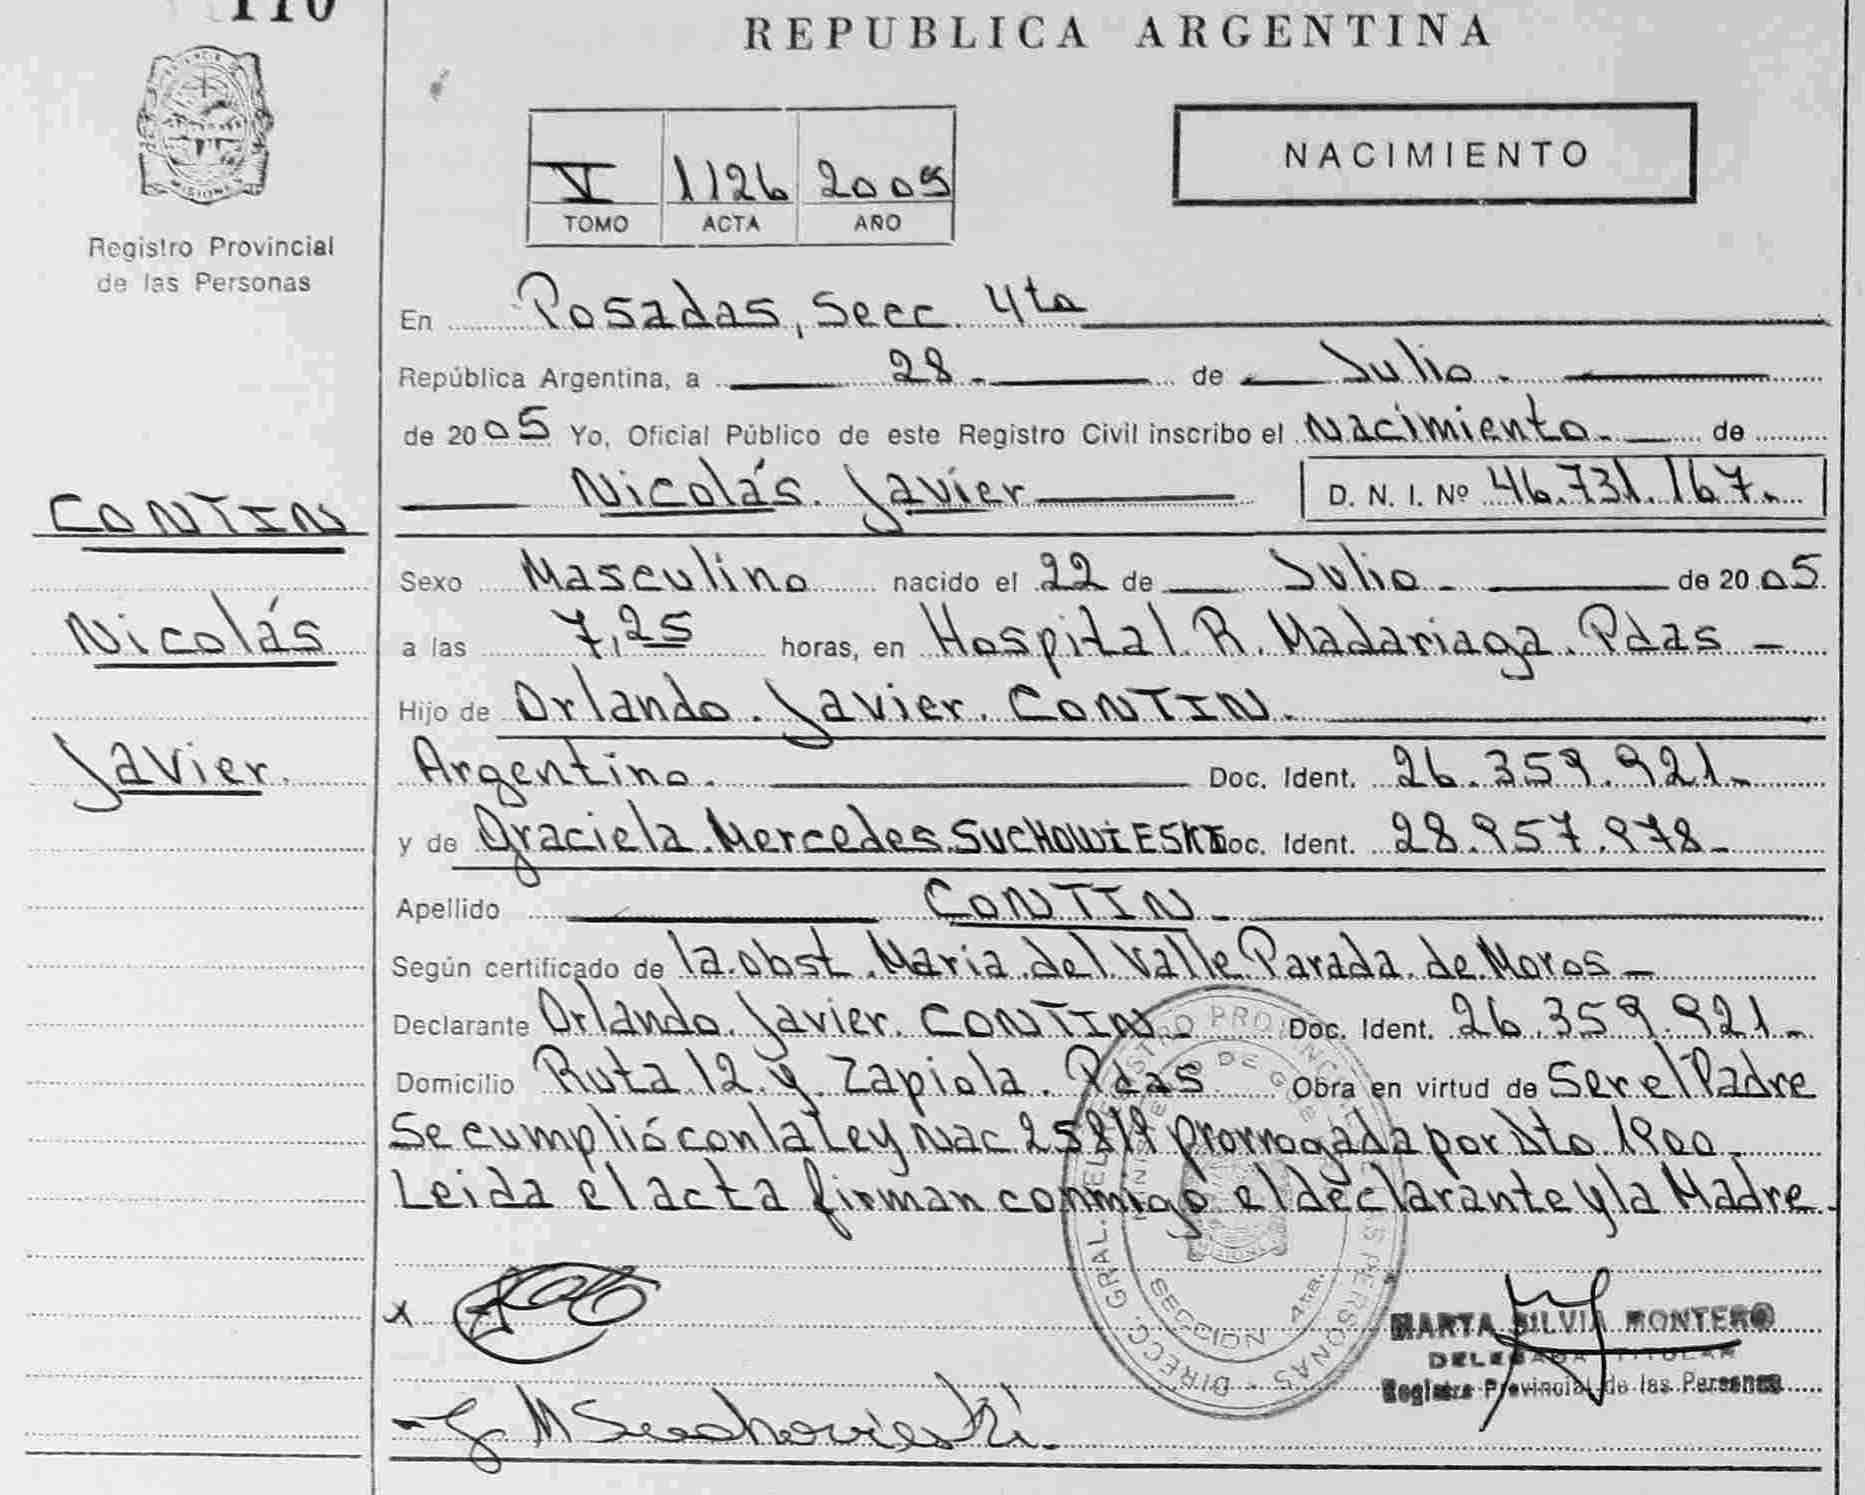 110
REPUBLICA ARGENTINA
MISIONES
Registro Provincial
de las Personas
V 1126 2005
TOMO ACTA AÑO
NACIMIENTO
En Posadas, Secc. 4ta
República Argentina, a 28 de Julio
de 2005 Yo, Oficial Público de este Registro Civil inscribo el Nacimiento de
Nicolás Javier D. N. I. Nº 46.731.167
CONTIN
Nicolás
Javier
Sexo Masculino nacido el 22 de Julio de 2005
a las 7,25 horas, en Hospital R. Madariaga. Pdas
Hijo de Orlando Javier CONTIN
Argentino Doc. Ident. 26.359.921
y de Graciela Mercedes SUCHOWIESKI Doc. Ident. 28.957.978
Apellido CONTIN
Según certificado de la obst. Maria del Valle Parada de Moros
Declarante Orlando Javier CONTIN Doc. Ident. 26.359.921
Domicilio Ruta 12 y Zapiola. Pdas Obra en virtud de Ser el Padre
Se cumplió con la Ley Nac. 25819 prorrogada por Dto 1900
Leida el acta firman conmigo el declarante y la Madre
DIRECC. GRAL. DEL REGISTRO PROVINCIAL DE LAS PERSONAS
SECCION 4ta.
MARTA SILVIA MONTERO
DELEGADA TITULAR
Registro Provincial de las Personas
G M Suchowieski